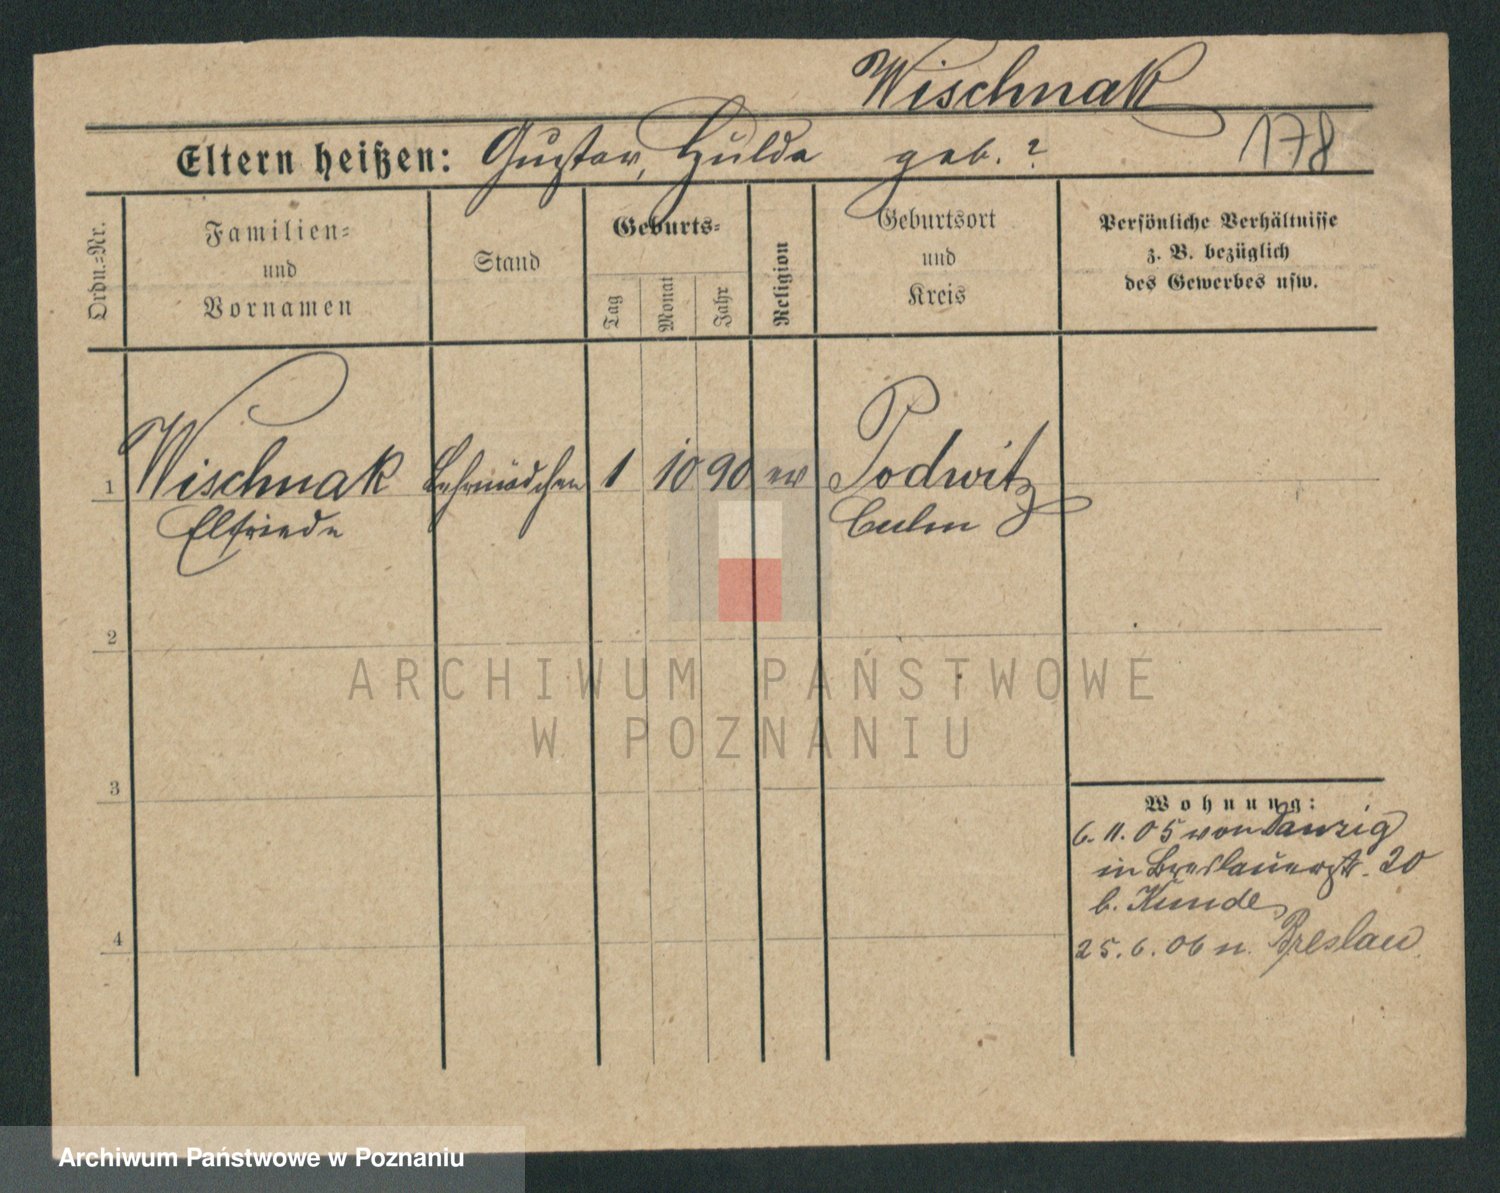 Wischnak
Eltern heißen: Gustav, Hulda geb. ?
178
Ordn.-Nr.
Familien-
und
Vornamen
Stand
Geburts-
Tag
Monat
Jahr
Religion
Geburtsort
und
Kreis
Persönliche Verhältnisse
z. B. bezüglich
des Gewerbes usw.
1 Wischnak Lehrmädchen 1 10 90 ev Podwitz
Elfriede Culm
2
ARCHIWUM PAŃSTWOWE
W POZNANIU
3
Wohnung:
6. 11. 05 von Danzig
in Breslauerstr. 20
b. Kunde
4
25. 6. 06 n. Breslau
Archiwum Państwowe w Poznaniu